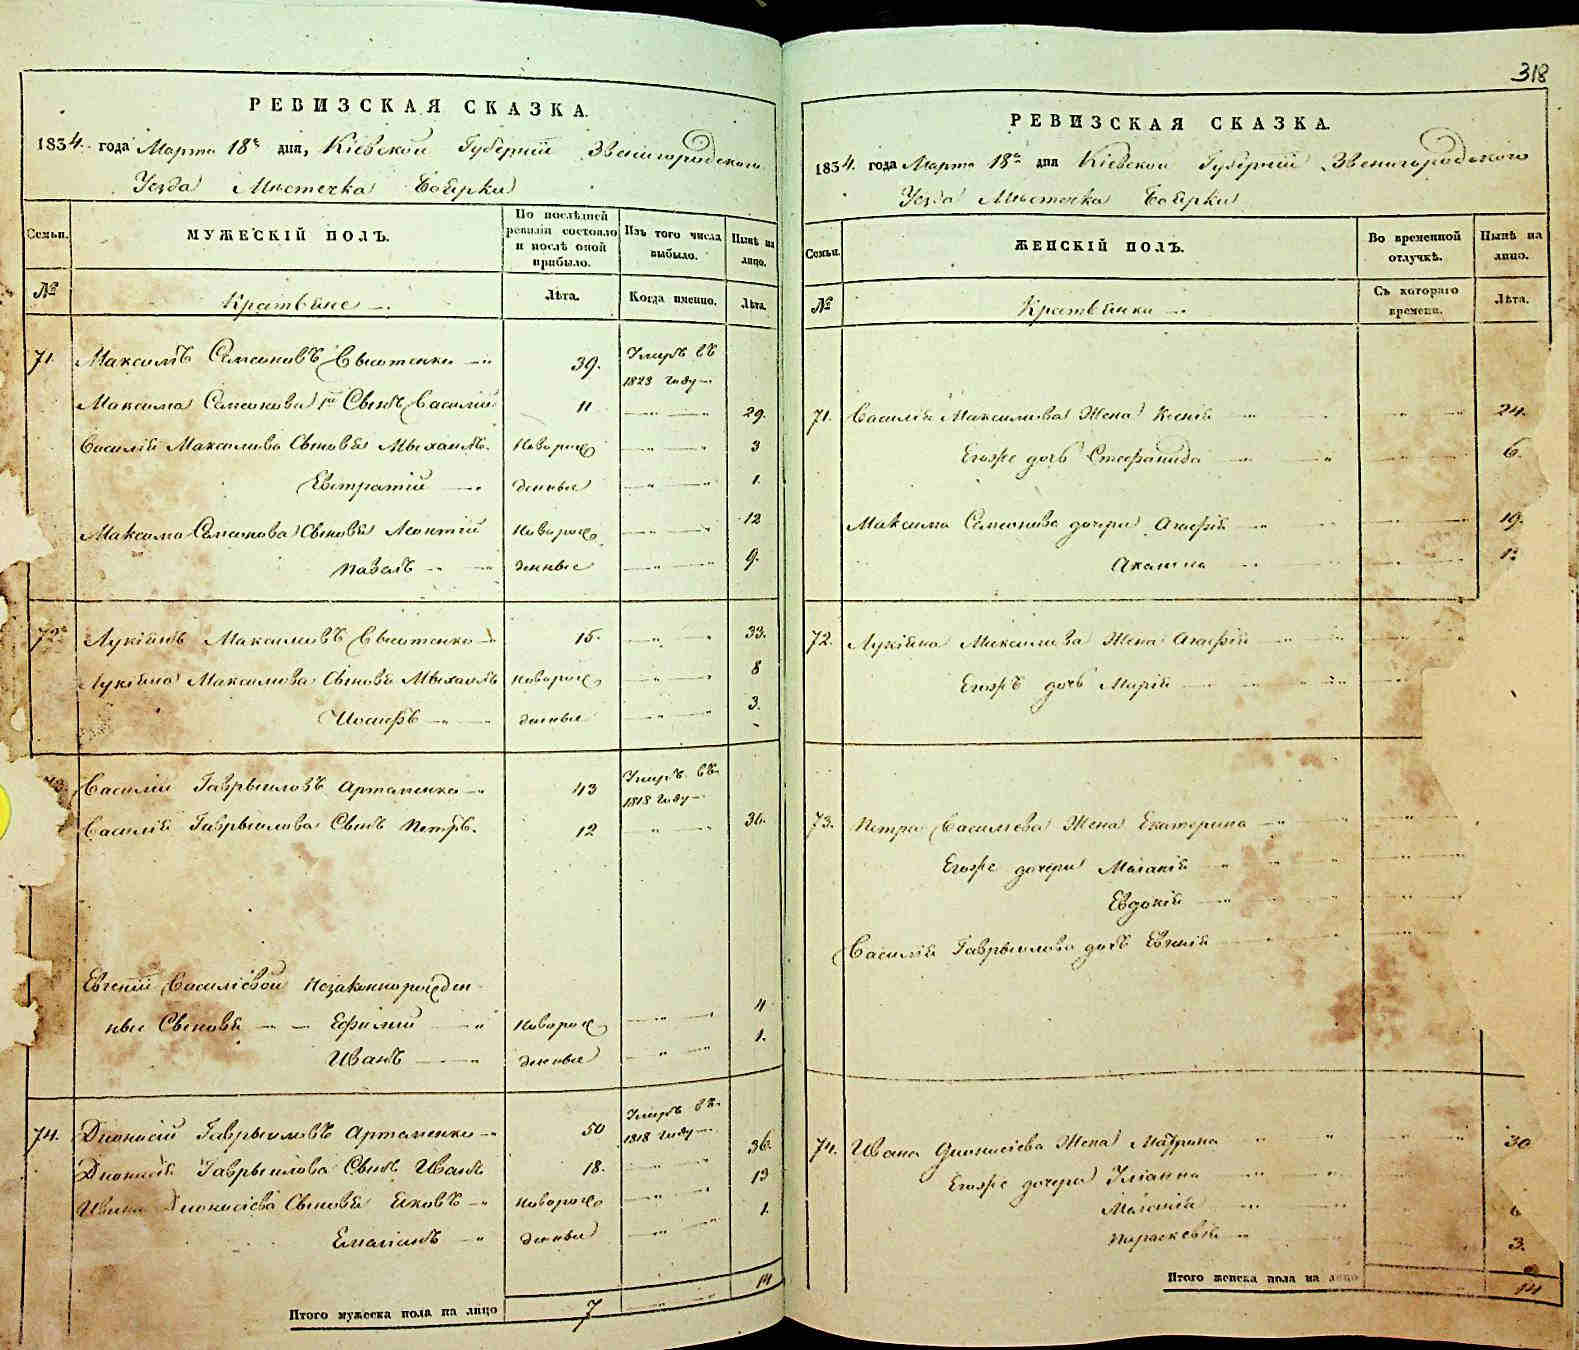 РЕВИЗСКАЯ СКАЗКА.
1834. года Марта 18го дня, Кіевской Губерніи Звенигородского
Уезда Мѣстечка Боярки
Семьи.
МУЖЕСКІЙ ПОЛЪ.
По послѣдней ревизіи состояло и послѣ оной прибыло.
Изъ того числа выбыло.
Нынѣ на лицо.
№
Крестьяне
Лѣта.
Когда именно.
Лѣта.
71. Максимъ Семеновъ 39. Умеръ въ
1823 году
Максима Семенова 1й Сынъ Василій 11 29.
Василія Максимова Сыновья Михаилъ. новорож 3
Евстратій денные 1.
Максима Семенова Сыновья Леонтій новорож 12
Павелъ денные 9.
72 Лукіянъ Максимовъ 15. 33.
Лукіяна Максимова Сыновья Михаилъ новорож 8
Иосифъ денные 3.
Василій Гаврыловъ Артеменко 43 Умеръ въ
1818 году
Василія Гаврылова Сынъ Петръ. 12
Евгеніи Василіевой незаконнорожден
ные Сыновья Ефимій новорож 4
Иванъ денные 1.
74. Дионисій Гаврыловъ Артеменко 50 Умеръ въ
1818 году
Дионисія Гаврылова Сынъ Иванъ 18. 36.
Ивана Дионисіева Сыновья Яковъ новорож 13
Емаліянъ денные 1.
Итого мужеска пола на лицо 7 14
318
РЕВИЗСКАЯ СКАЗКА.
1834. года Марта 18го дня Кіевской Губерніи Звенигородского
Уезда Мѣстечка Боярки
Семьи.
ЖЕНСКІЙ ПОЛЪ.
Во временной отлучкѣ.
Нынѣ на лицо.
№
Крестьянки
Съ котораго времени.
Лѣта.
71. Василія Максимова Жена Ксенія 24.
Егожъ дочь Стефанида 6.
Максима Семенова дочери Агафія 19.
72. Лукіяна Максимова Жена Агафія
Егожъ дочь Марія
73. Петра Василіева Жена Екатерина
Егоже дочери Маланія
Евдокія
Василія Гаврылова дочь Евгенія
74. Ивана Дионисіева Жена Матрона 30
Егоже дочери Уліанна
Маланія 6
Параскевія 3.
Итого женска пола на лицо 14